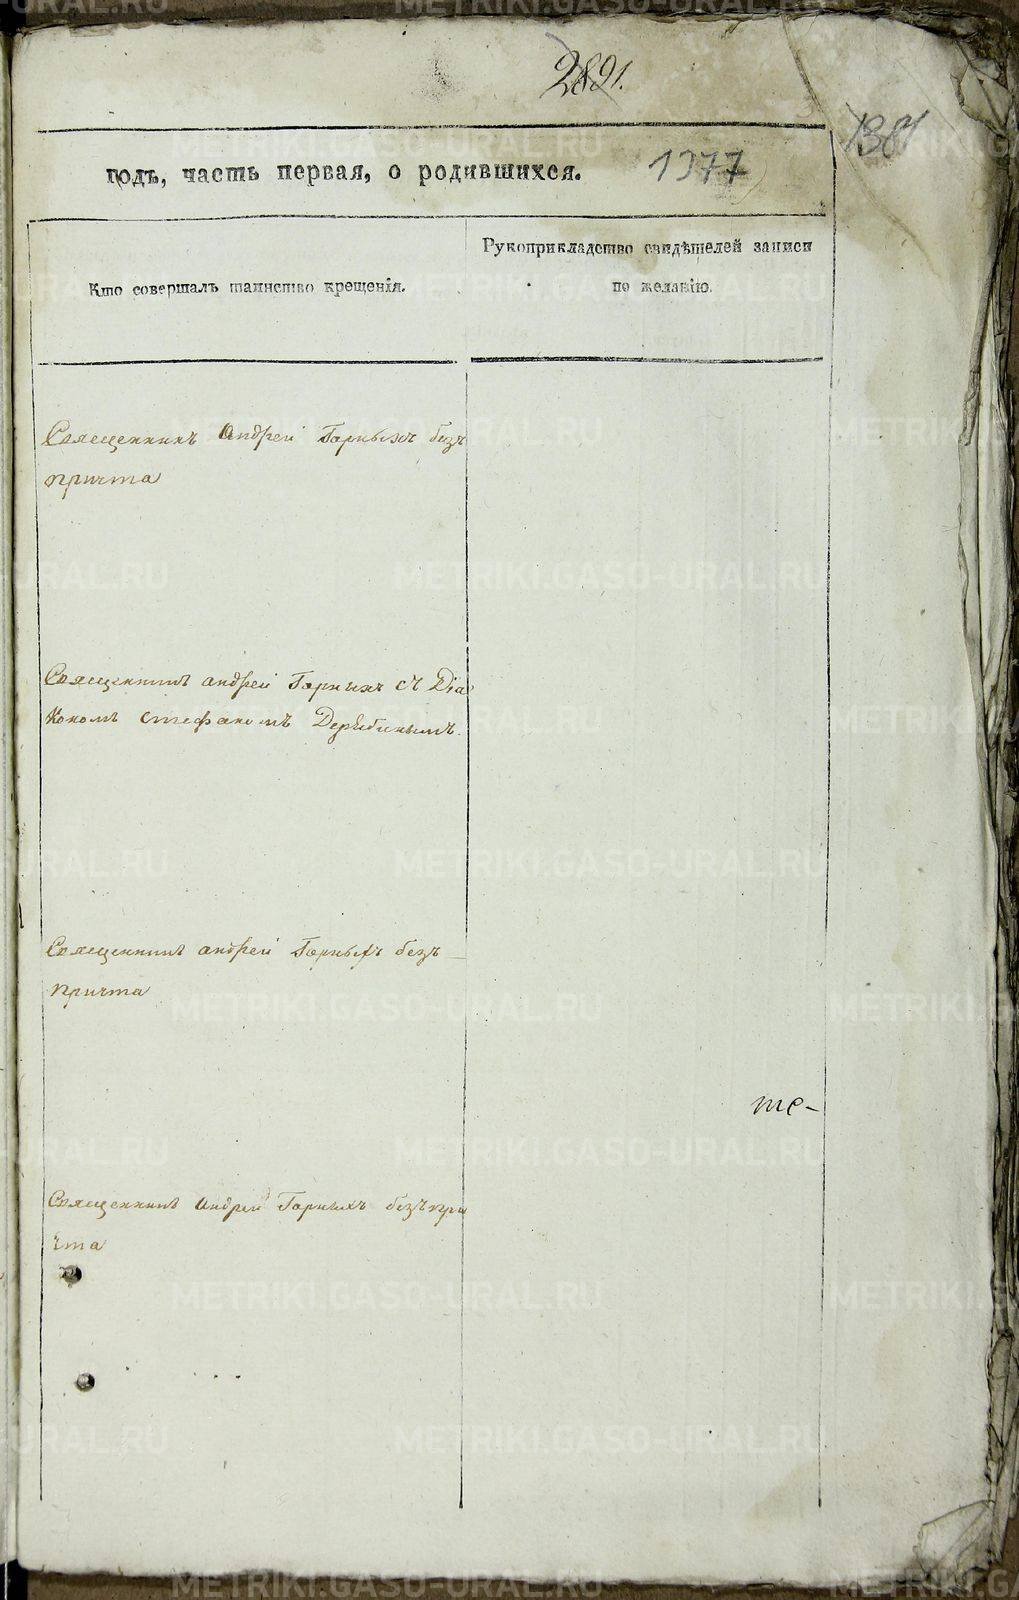 2891.
1381
годъ, часть первая, о родившихся. 1377
Кто совершалъ таинство крещенія.
Рукоприкладство свидѣтелей записи
по желанію.
Священникъ Андрей Горныхъ безъ
причта
Священникъ Андрей Горныхъ съ Діа
кономъ Стефаномъ Дерябинымъ.
Священникъ Андрей Горныхъ безъ
причта
те-
Священникъ Андрей Горныхъ безъ при
чта
METRIKI.GASO-URAL.RU